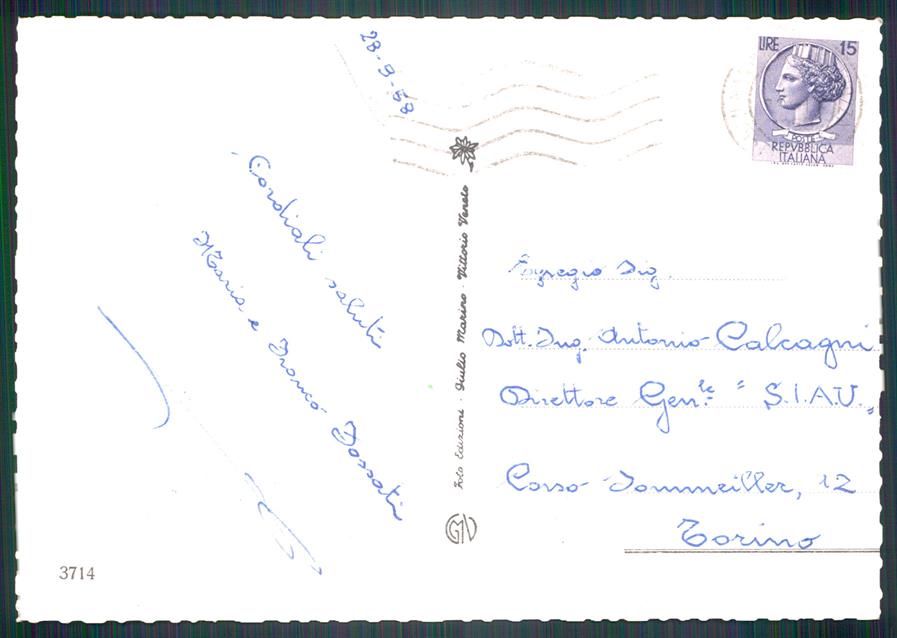 28-9-58
Cordiali saluti
Maria e Franco Fossati
3714
Foto Edizioni · Giulio Marino · Vittorio Veneto
GMV
LIRE 15
POSTE
REPVBBLICA
ITALIANA
Egregio Sig.
Dott. Ing. Antonio Calcagni
Direttore Gen.le "S.I.A.U."
Corso Sommeiller, 12
Torino